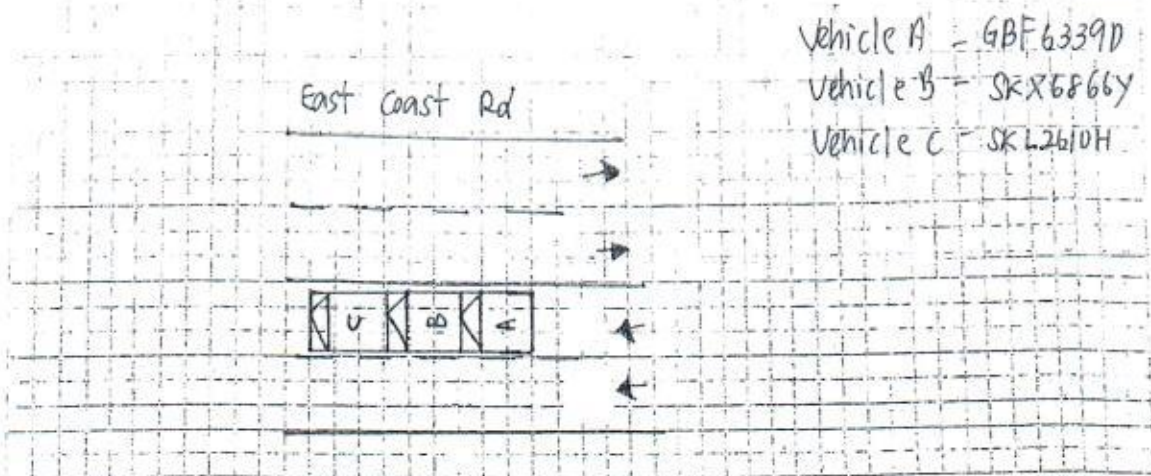 Vehicle A - GBF6339D
Vehicle B - SKX6866Y
Vehicle C - SKL2610H
East Coast Rd
C B A